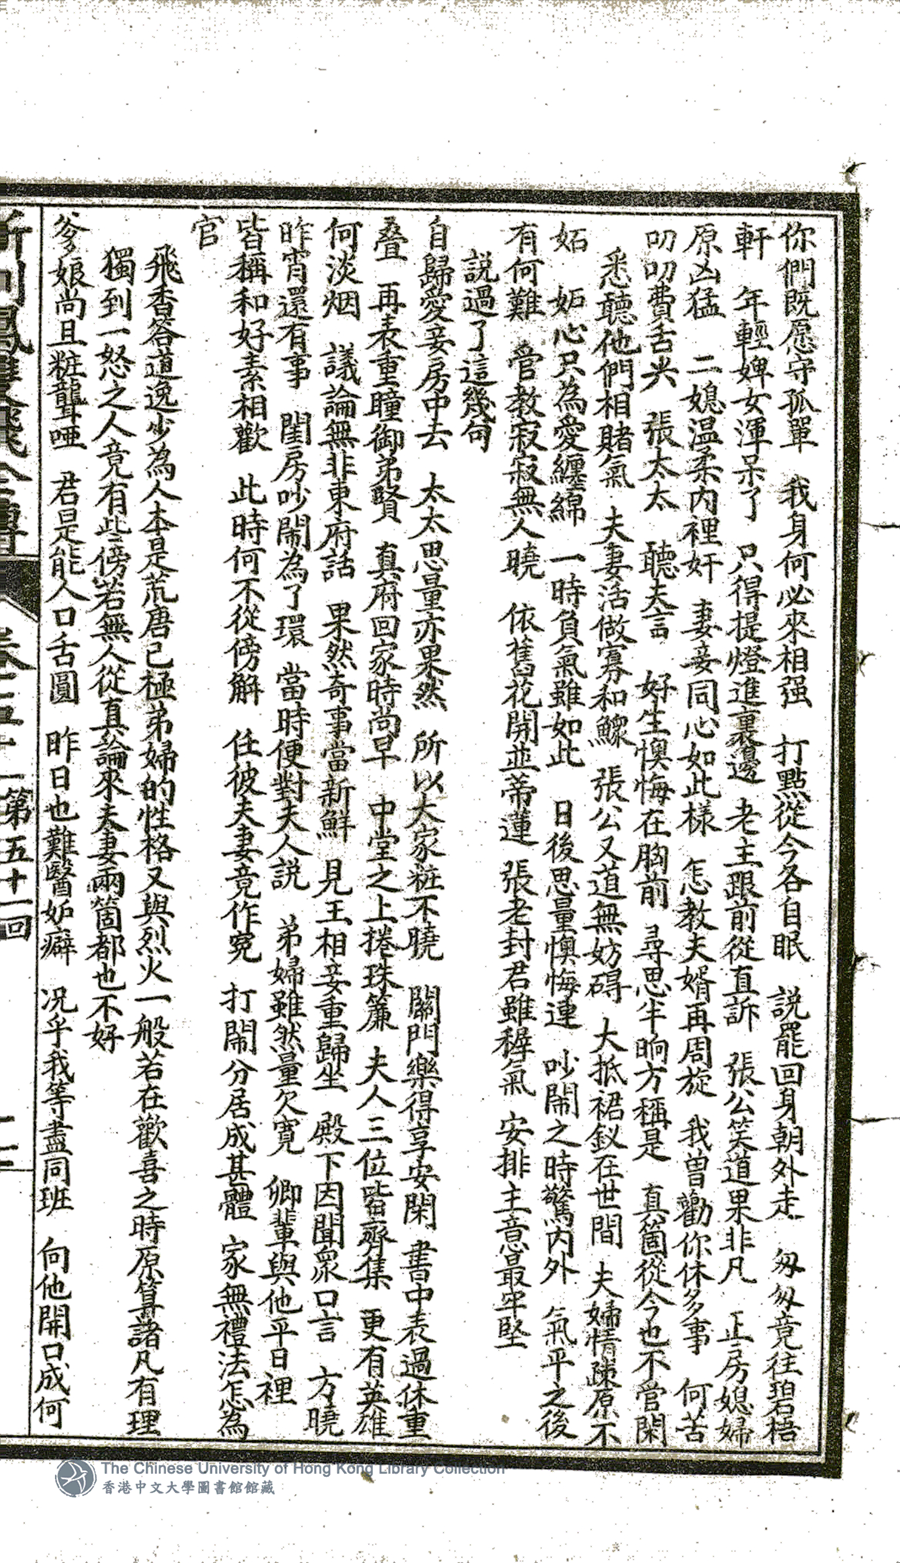 你們既愿守孤單　我身何必來相强　打點從今各自眠　説罷回身朝外走　匆匆竟往碧梧
軒　年輕婢女渾呆了　只得提燈進裏邊　老主跟前從直訴　張公笑道果非凡　正房媳婦
原凶猛　二媳温柔内裡奸　妻妾同心如此樣　怎教夫婿再周旋　我曾勸你休多事　何苦
叨叨費舌尖　張太太　聽夫言　好生懊悔在胸前　尋思半晌方稱是　真箇從今也不管閑
悉聽他們相賭氣　夫妻活做寡和鰥　張公又道無妨碍　大抵裙釵在世間　夫婦情疎原不
妬　妬心只為愛纏綿　一時負氣雖如此　日後思量懊悔連　吵鬧之時驚内外　氣平之後
有何難　管教寂寂無人曉　依舊花開並蒂蓮　張老封君雖穉氣　安排主意最牢堅
説過了這幾句
自歸愛妾房中去　太太思量亦果然　所以大家粧不曉　關門樂得享安閑　書中表過休重
叠　再表重瞳御弟賢　真府回家時尚早　中堂之上捲珠簾　夫人三位皆齊集　更有英雄
何淡烟　議論無非東府話　果然奇事當新鮮　見王相妾重歸坐　殿下因聞衆口言　方曉
昨宵還有事　閨房吵鬧為了環　當時便對夫人説　弟婦雖然量欠寛　卿輩與他平日裡
皆稱和好素相歡　此時何不從傍觧　任彼夫妻竟作寃　打鬧分居成甚體　家無禮法怎為
官
飛香答道逸少為人本是荒唐已極弟婦的性格又與烈火一般若在歡喜之時原算諸凡有理
獨到一怒之人竟有些傍若無人從真論來夫妻兩箇都也不好
爹娘尚且粧聾啞　君是能人口舌圓　昨日也難醫妬癖　况乎我等盡同班　向他開口成何
卷　第五十一回
The Chinese University of Hong Kong Library Collection
香港中文大學圖書館館藏